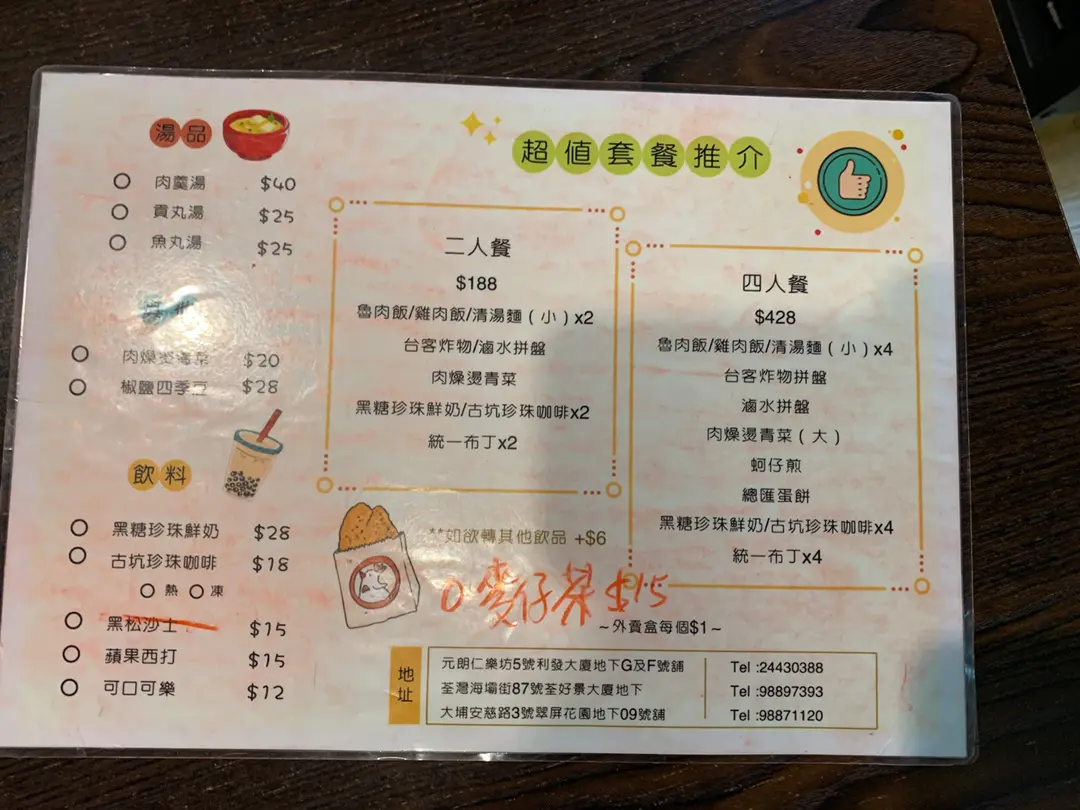 湯品
肉羹湯 $40
貢丸湯 $25
魚丸湯 $25
肉燥燙青菜 $20
椒鹽四季豆 $28
飲料
黑糖珍珠鮮奶 $28
古坑珍珠咖啡 $18
熱 凍
黑松沙士 $15
蘋果西打 $15
可口可樂 $12
超值套餐推介
二人餐
$188
魯肉飯/雞肉飯/清湯麵(小)x2
台客炸物/滷水拼盤
肉燥燙青菜
黑糖珍珠鮮奶/古坑珍珠咖啡x2
統一布丁x2
四人餐
$428
魯肉飯/雞肉飯/清湯麵(小)x4
台客炸物拼盤
滷水拼盤
肉燥燙青菜(大)
蚵仔煎
總匯蛋餅
黑糖珍珠鮮奶/古坑珍珠咖啡x4
統一布丁x4
**如欲轉其他飲品 +$6
麥仔茶 $15
~外賣盒每個$1~
地址
元朗仁樂坊5號利發大廈地下G及F號舖 Tel :24430388
荃灣海壩街87號荃好景大廈地下 Tel :98897393
大埔安慈路3號翠屏花園地下09號舖 Tel :98871120